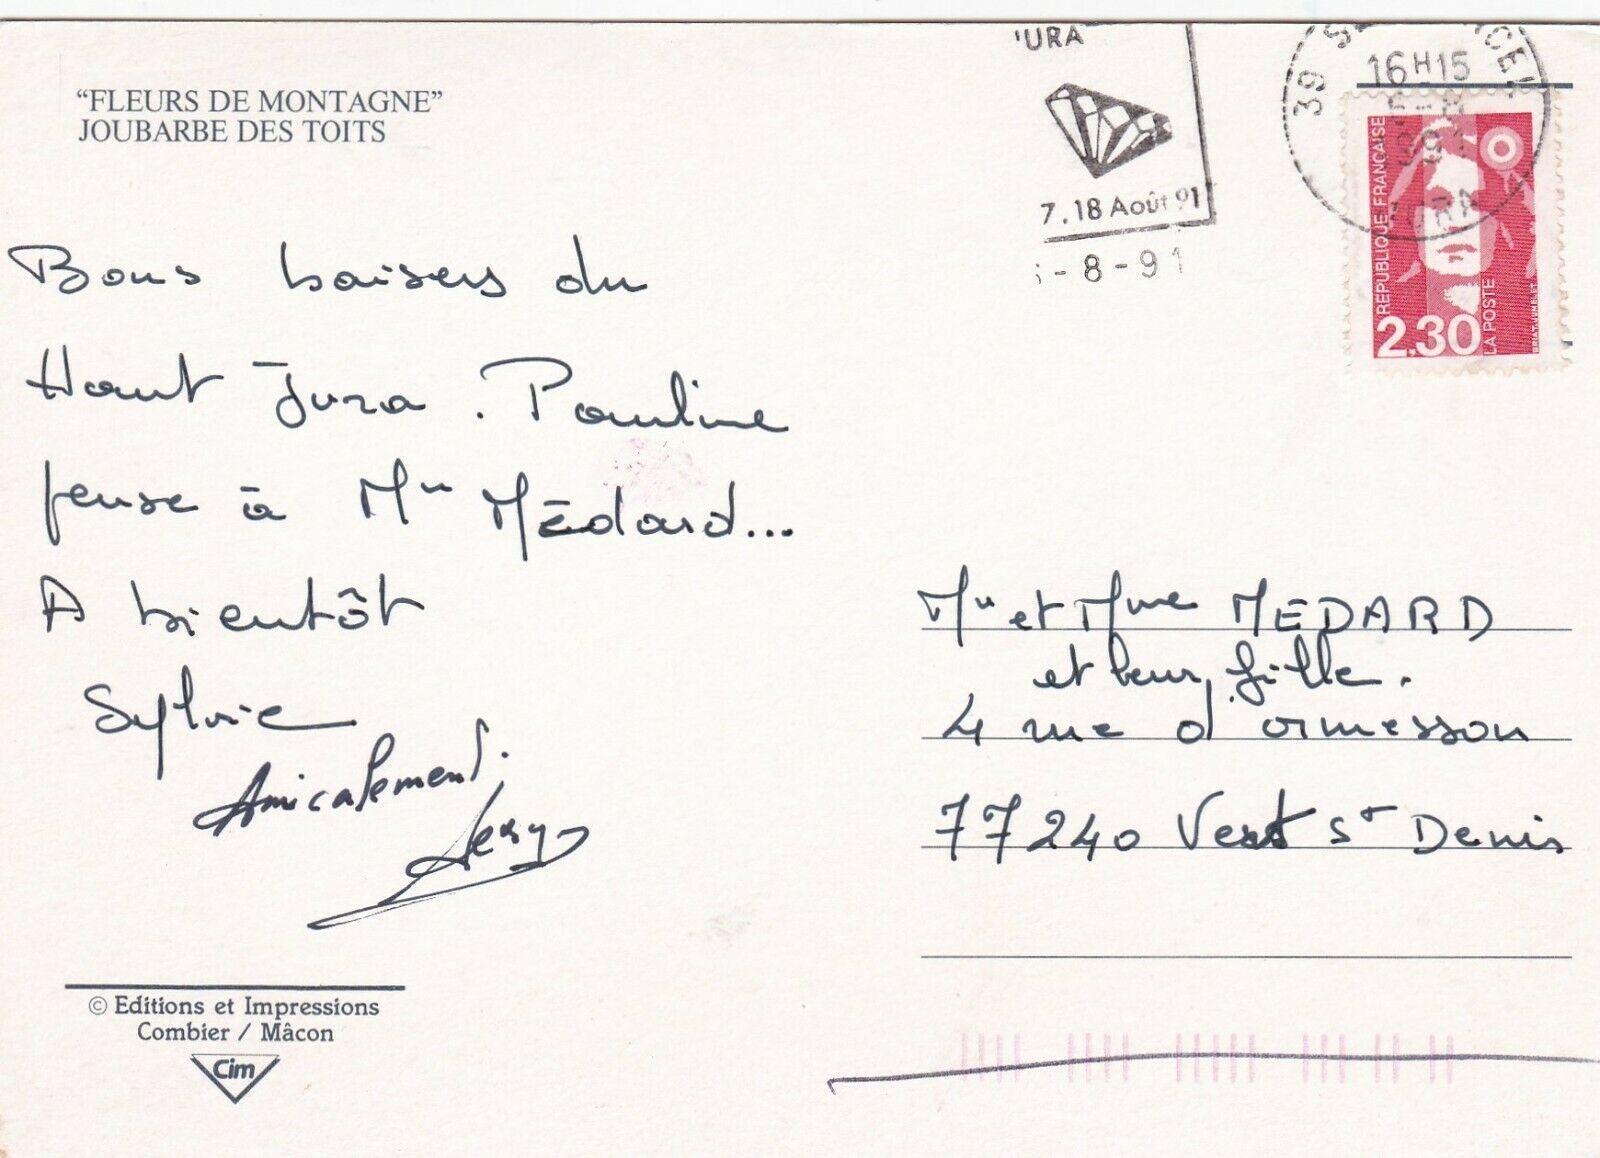 “FLEURS DE MONTAGNE”
JOUBARBE DES TOITS
'URA
7.18 Août 91
-8-91
39
16H15
REPUBLIQUE FRANÇAISE
2,30
LA POSTE
Bons baisers du
Haut Jura. Pauline
pense à Mr Médard...
A bientôt
Sylvie
Amicalement.
Mr et Mme MEDARD
et leur fille.
4 rue d'ormesson
77240 Vert St Denis
© Editions et Impressions
Combier / Mâcon
Cim